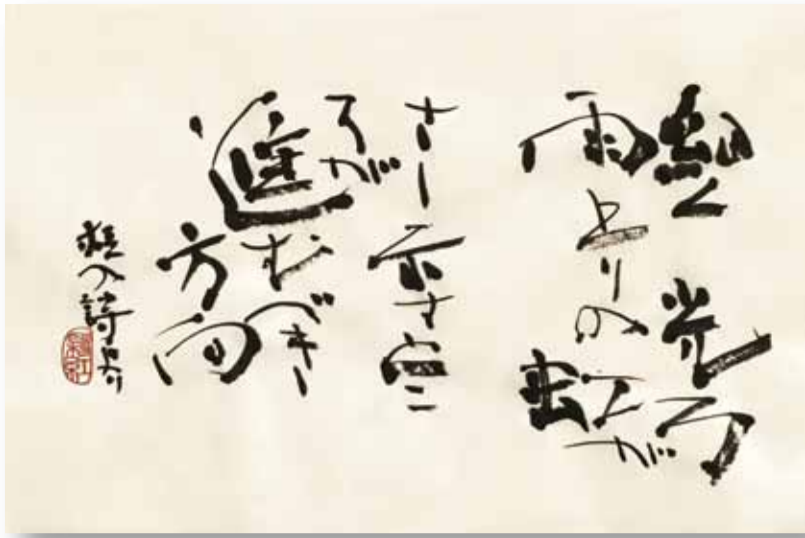 細く光る
雨上りの虹が
さし示す
ろが
進むべき
方向
の詩より